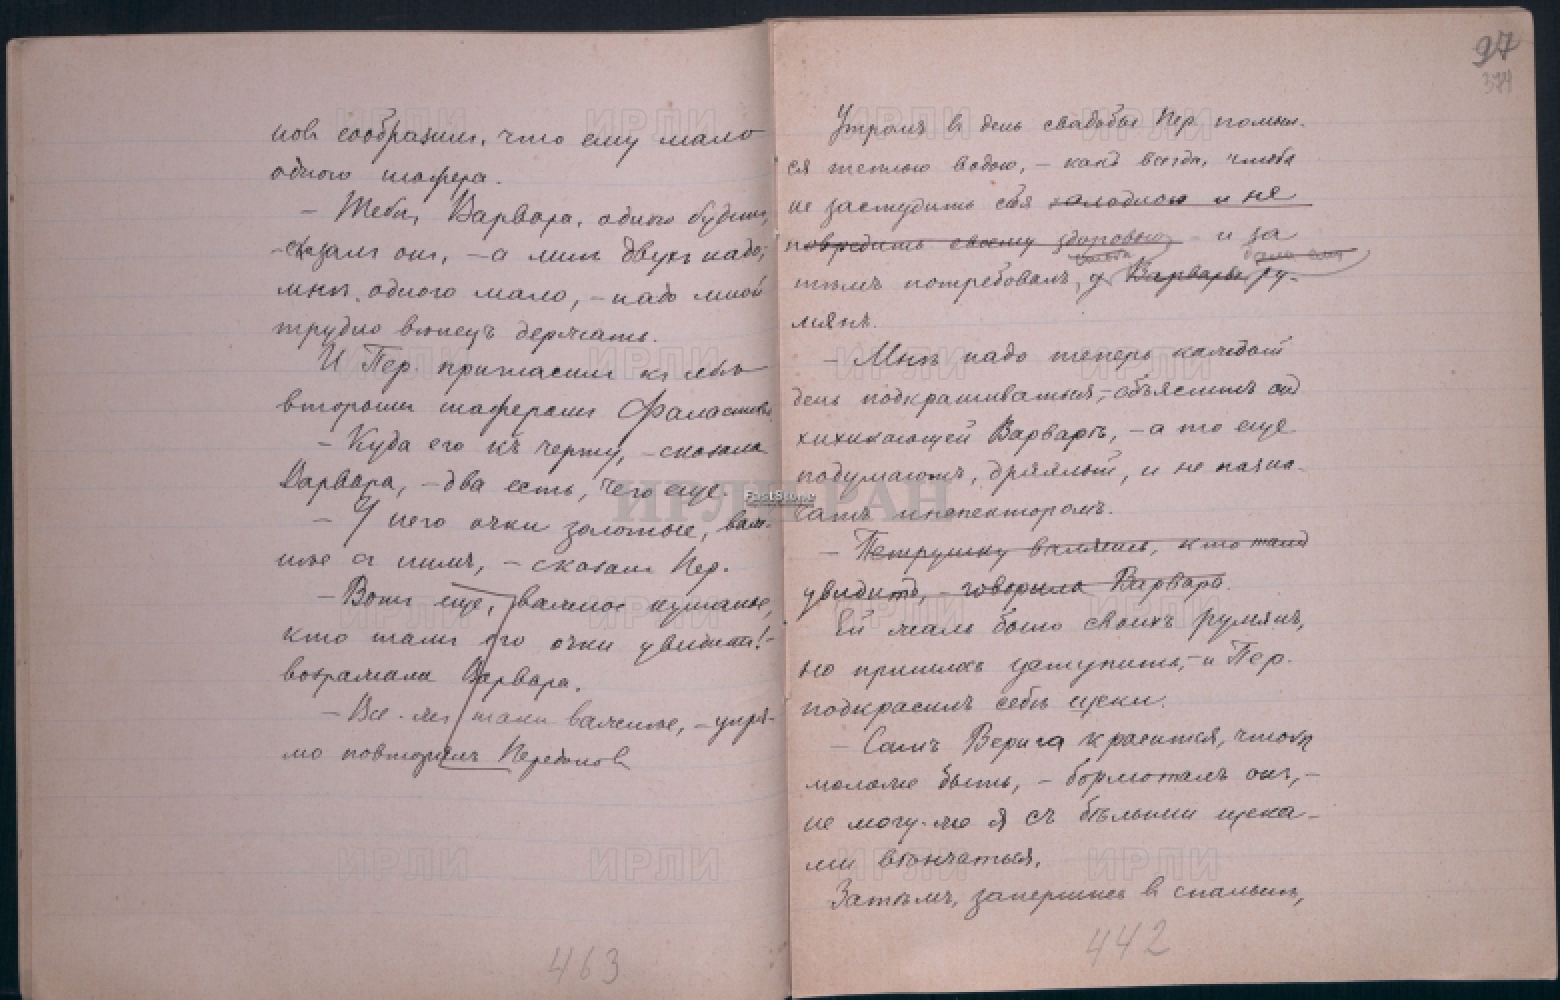 новъ сообразилъ, что ему мало
одного шафера.
– Тебѣ, Варвара, одного будетъ,
– сказалъ онъ, – а мнѣ двухъ надо,
мнѣ одного мало, – надо мной
трудно вѣнецъ держать.
И Пер. пригласилъ къ себѣ
вторымъ шаферомъ Фаластова.
– Куда его къ черту, – сказала
Варвара, – два есть, чего еще.
– У него очки золотые, важ-
нѣе съ нимъ, – сказалъ Пер.
– Вотъ еще, важное кушанье,
кто тамъ его очки увидитъ! –
возражала Варвара.
– Все-же таки важнѣе, – упря-
мо повторялъ Передонов
463
97
374
Утромъ въ день свадьбы Пер. помыл-
ся теплою водою, – какъ всегда, чтобы
не застудить себя холодною и не
повредить своему здоровью – и за
тѣмъ потребовалъ у Варвары ру-
мянъ.
– Мнѣ надо теперь каждый
день подкрашиваться, – объяснилъ онъ
хихикающей Варварѣ, – а то еще
подумаютъ, дряхлый, и не назна-
чатъ инспекторомъ.
– Петрушку валяешь, кто тамъ
увидитъ, – говорила Варвара.
Ей жаль было своихъ румянъ,
но пришлось уступить, – и Пер.
подкрасилъ себѣ щеки.
– Самъ Верига красится, чтобы
моложе быть, – бормоталъ онъ, –
не могу-же я съ бѣлыми щека-
ми вѣнчаться.
Затѣмъ, запершись въ спальнѣ,
442
ИРЛИ РАН
FastStone
ИРЛИ